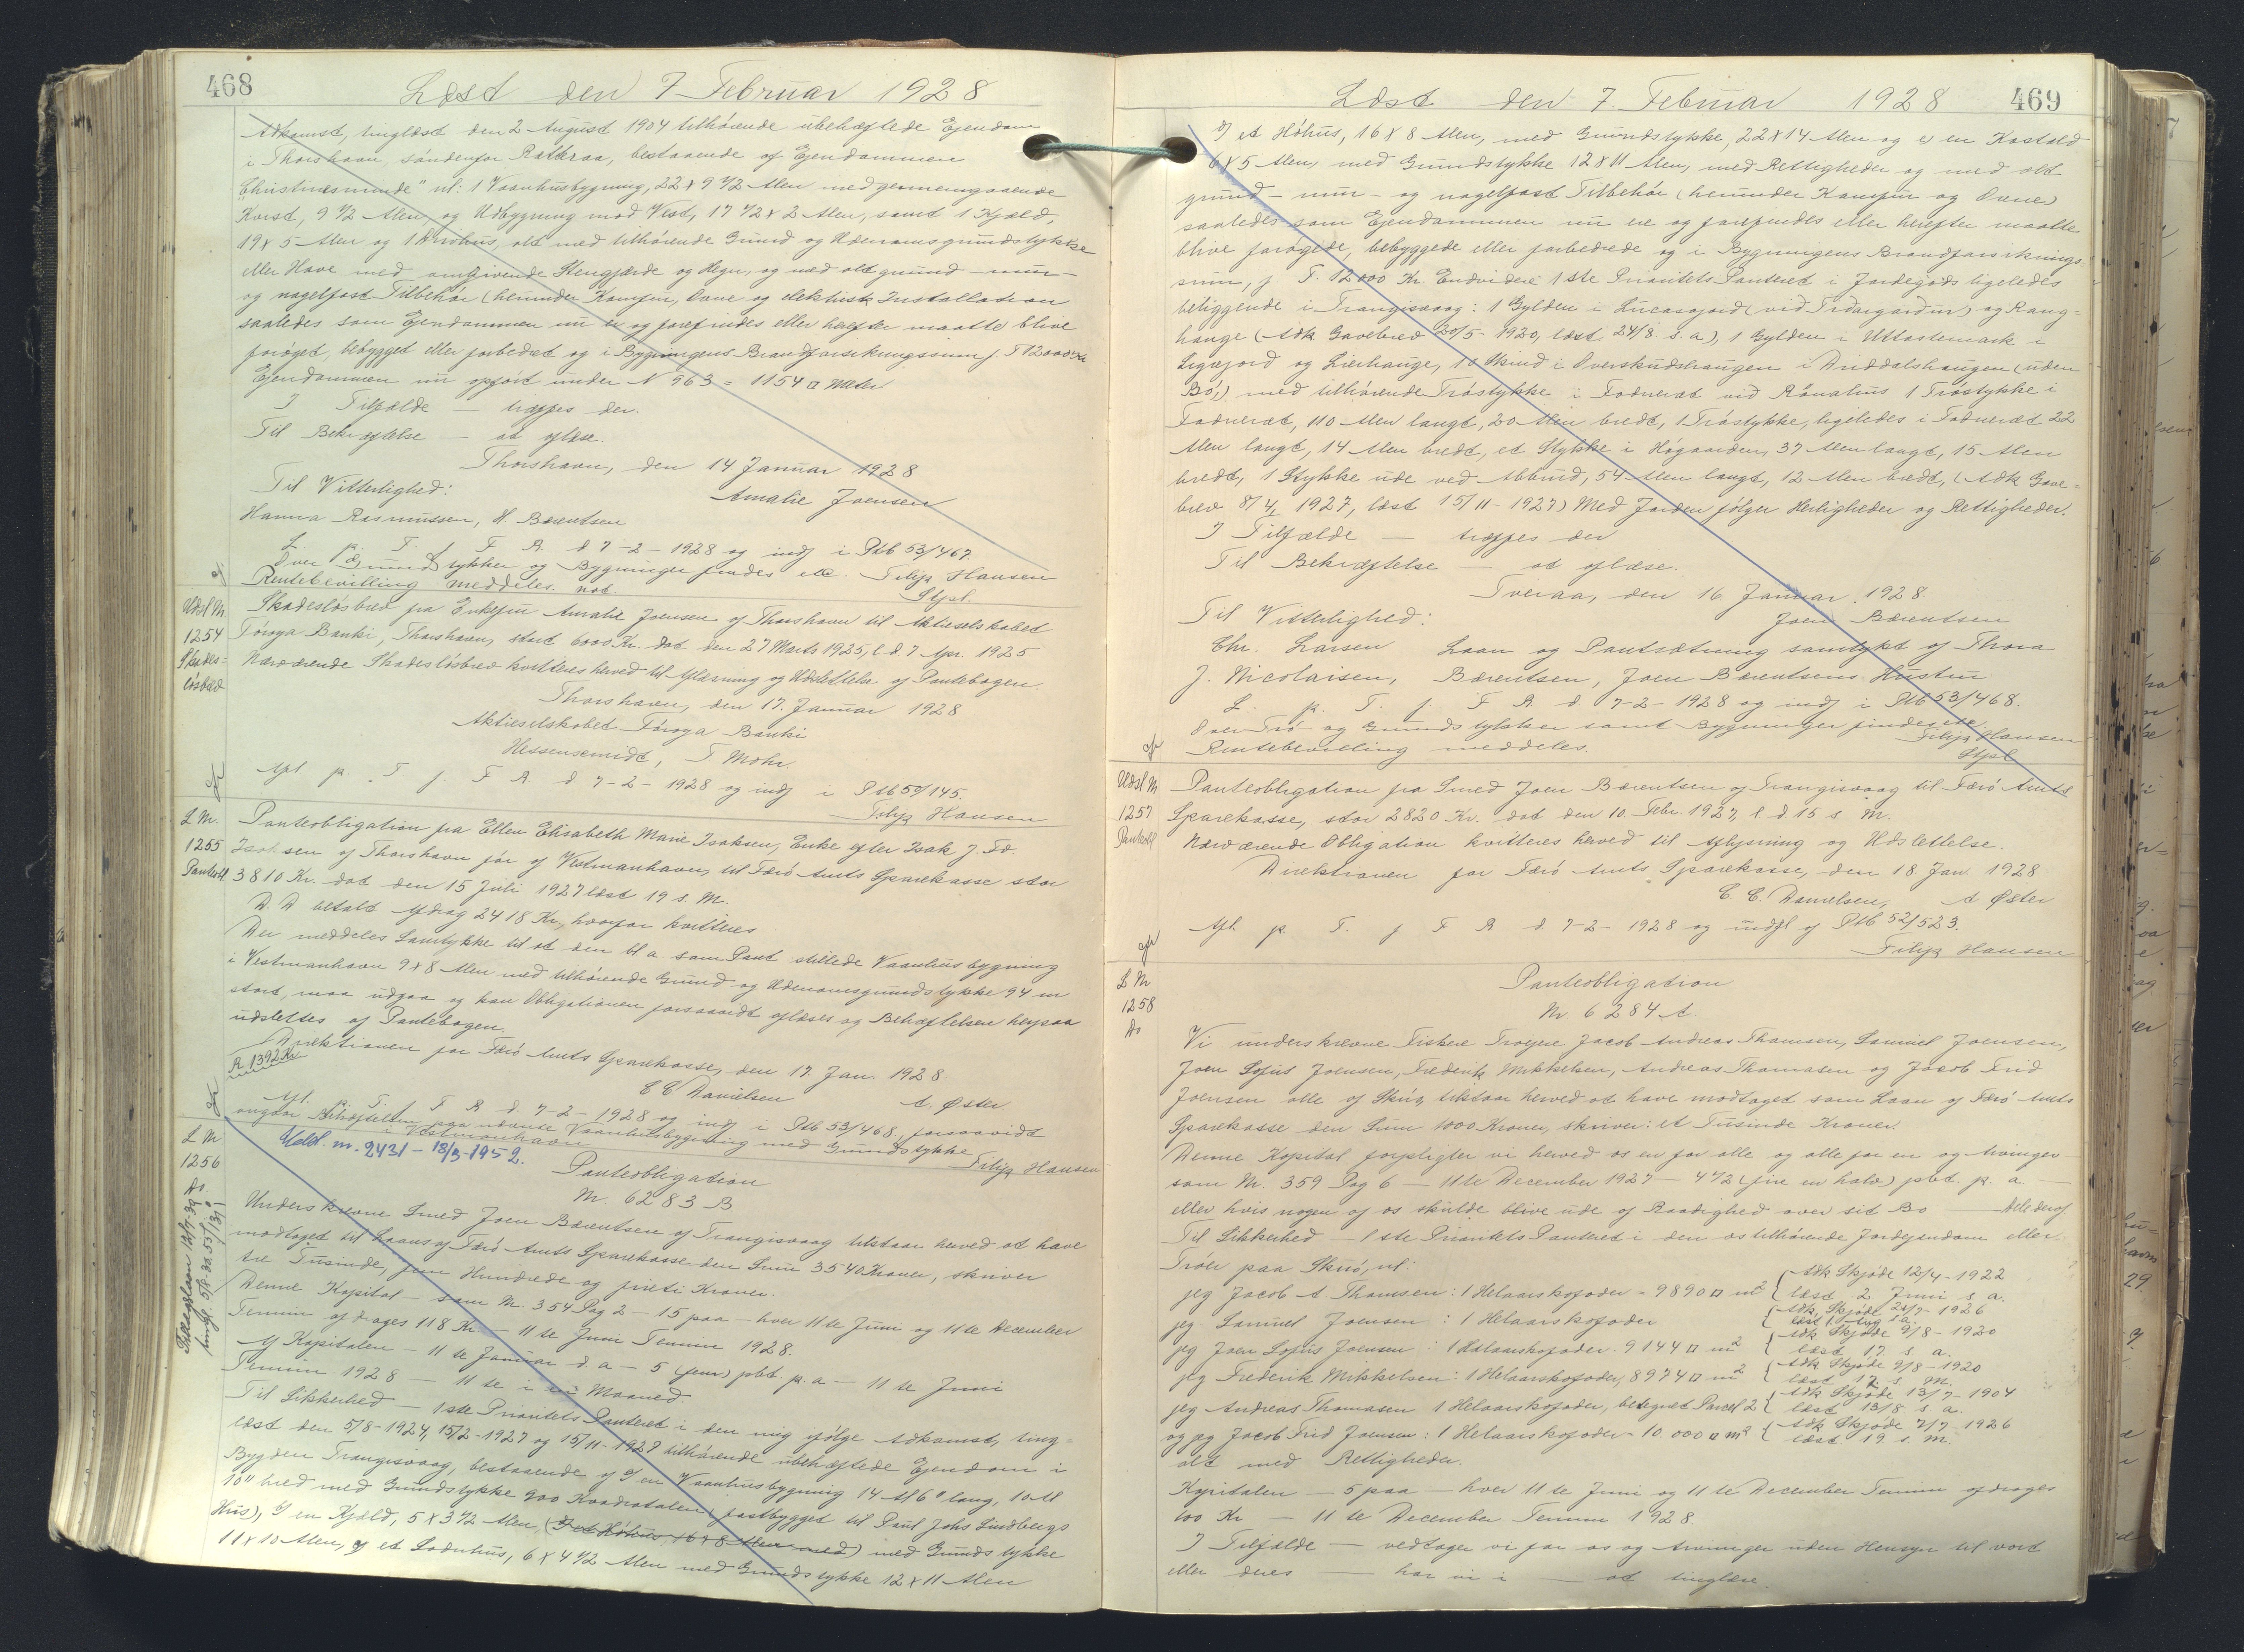 468
Læst den 7 Februar 1928
Adkomst, tinglæst den 2 August 1904 tilhørende ubehæftede Ejendom
i Thorshavn, søndenfor Ratteraa, bestaaende af Ejendommen
"Christinesminde" nl: 1 Vaanhusbygning, 22 x 9 1/2 Alen med gennemgaaende
Kvist, 9 1/2 Alen, og Udbygning mod Vest, 17 1/2 x 2 Alen, samt 1 Kjæld,
19 x 5 Alen og 1 , alt med tilhørende Grund og Udenomsgrundstykke
eller Have med omgivende Stengjærde og Hegn, og med alt grund- mur-
og nagelfast Tilbehør (herunder Komfur, Ovne og elektrisk Installation
saaledes som Ejendommen nu er og forefindes eller herefter maatte blive
forøget, bebygget eller forbedret og i Bygningens Brandforsikringssum f. T 12000 Kr
Ejendommen nu opført under N 963 = 1154 □ Meter
I Tilfælde — træffes der.
Til Bekræftelse — at aflæse.
Thorshavn, den 14 Januar 1928
Til Vitterlighed: Amalie Joensen
Hanna Rasmussen, H. Barentsen
L. p. T. f. F. R. d 7-2-1928 og indf i Ptb 53/467.
Over Grundstykker og Bygninger findes etc. Filip Hansen
Rentebevilling meddeles. not. Stfol.
Udsl M Skadesløsbrev fra Enkefru Amalie Joensen af Thorshavn til Aktieselskabet
1254 Føroya Banki, Thorshavn, stort 6000 Kr. dat den 27 Marts 1925, l d 7 Apr. 1925
Skades= Nærværende Skadesløsbrev kvitteres herved til Aflæsning og Udslettelse af Pantebogen.
løsbrev
Thorshavn, den 17. Januar 1928
Aktieselskabet Føroya Banki
Hessensmidt, T Mohr.
Afl p. T f. F R d 7-2-1928 og indf i Ptb 50/145.
Filip Hansen
L M. Panteobligation fra Ellen Elisabeth Marie Isaksen, Enke efter Isak J. Fr
1255 Isaksen af Thorshavn før af Vestmanhavn, til Færø Amts Sparekasse stor
Panteobl 3810 Kr. dat den 15 Juli 1927 læst 19 s. M.
D. D betalt Afdrag 2418 Kr, hvorfor kvitteres
Der meddeles Samtykke til at den bl a. som Pant stillede Vaanhusbygning
i Vestmanhavn 9 x 8 Alen med tilhørende Grund og Udenomsgrundstykke 94 m
stort, maa udgaa og kan Obligationen forsaavidt aflæses og Behæftelsen herpaa
udslettes af Pantebogen.
Direktionen for Færø Amts Sparekasse, den 17. Jan. 1928
R. 1392 Kr
C C Danielsen A. Øster
Afl. p. T. f F R d. 7-2-1928 og indf i Ptb 53/468, forsaavidt
angaar Behæftelsen paa nævnte Vaanhusbygning med Grundstykke
i Vestmanhavn Filip Hansen
L M Udsl. nr. 2431 - 18/3-1952.
1256 Panteobligation
Do. Nr. 6283 B
Underskrevne Smed Joen Barentsen af Trangisvaag tilstaar herved at have
modtaget til Laans af Færø Amts Sparekasse den Sum 3540 Kroner, skriver
tre Tusinde, fem Hundrede og firti Kroner.
Denne Kapital — som Nr. 354 Pag 2 — 15 paa — hver 11te Juni og 11te December
Termin afdrages 118 Kr — 11te Juni Termin 1928.
Af Kapitalen — 11te Januar d. a — 5 (fem) pbt p. a — 11te Juni
Termin 1928 — 11te i en Maaned.
Til Sikkerhed — 1ste Prioritets Panteret i den mig ifølge Adkomst, ting=
læst den 5/8-1924, 15/2-1927 og 15/11-1927 tilhørende ubehæftede Ejendom i
Bygden Trangisvaag, bestaaende af en Vaanhusbygning 14 Al 6" lang, 10 Al
10" bred med Grundstykke 900 Kvadratalen (fastbygget til Paul Johs Lindbergs
Hus), en Kjæld, 5 x 3 1/2 Alen, (et Høhus, 16 x 8 Alen med) med Grundstykke
11 x 10 Alen, et Ladnhus, 6 x 4 1/2 Alen med Grundstykke 12 x 11 Alen
469
Læst den 7. Februar 1928
et Høhus, 16 x 8 Alen, med Grundstykke, 22 x 14 Alen og en Kostald
6 x 5 Alen, med Grundstykke 12 x 11 Alen, med Rettigheder og med alt
grund- mur- og nagelfast Tilbehør (herunder Komfur og Ovne)
saaledes som Ejendommen nu er og forefindes eller herefter maatte
blive forøgede, bebyggede eller forbedrede og i Bygningens Brandforsikrings=
sum, f T. 12000 Kr. Endvidere 1ste Prioritets Panteret i Jordegods ligeledes
beliggende i Trangisvaag: 1 Gylden i Lucasajord (við Tiðargarður) og Rang=
hange (Adk Gavebrev 20/5-1920, læst 24/8 s. a), 1 Gylden i Uttastemark i
Ligajord og Lierhauge, 10 Skind i Overskudshaugen i Driddalshaugen (uden
Bø,) med tilhørende Trøstykke i Fodneret við Rónatius 1 Trøstykke i
Fodneret, 110 Alen langt, 20 Alen bredt, 1 Trøstykke, ligeledes i Fodneret 22
Alen langt, 14 Alen bredt, et Stykke i Høganden, 37 Alen langt, 15 Alen
bredt, 1 Stykke ude ved , 54 Alen langt, 12 Alen bredt, (Adk Gave=
brev 8/4, 1927, læst 15/11-1927) Med Jorden følger Herligheder og Rettigheder.
I Tilfælde — træffes der
Til Bekræftelse — at aflæse.
Tveraa, den 16 Januar 1928
Til Vitterlighed: Joen Bærentsen
Chr. Larsen Laan og Pantsætning samtykt af Thora
J. Nicolaisen, Bærentsen, Joen Bærentsens Hustru
L. p. T. f. F R d 7-2-1928 og indf i Ptb 53/468.
Over Trø- og Grundstykker samt Bygninger findes etc
Rentebevilling meddeles. Filip Hansen
Stfol
Udsl M Panteobligation fra Smed Joen Bærentsen af Trangisvaag til Færø Amts
1257 Sparekasse, stor 2820 Kr. dat den 10. Febr. 1927, l d 15 s. M.
Panteobl Nærværende Obligation kvitteres herved til Aflysning og Udslettelse.
Direktionen for Færø Amts Sparekasse, den 18. Jan. 1928
C. C. Danielsen, A Øster
Afl. p. T. f F R d 7-2-1928 og udsl af Ptb 52/523.
Filip Hansen
L M Panteobligation
1258 Nr 6284 A.
Do
Vi underskrevne Fiskere Trøejere Jacob Andreas Thomsen, Samuel Joensen,
Joen Sofus Joensen, Frederik Mikkelsen, Andreas Thomasen og Jacob Frid
Joensen alle af Skuø, tilstaar herved at have modtaget som Laan af Færø Amts
Sparekasse den Sum 1000 Kroner, skriver: et Tusinde Kroner.
Denne Kapital forpligter vi herved os en for alle og alle for en og Arvinger
som Nr. 359 Pag 6 — 11te December 1927 — 4 1/2 (fire en halv) pbt. p. a. —
eller hvis nogen af os skulde blive ude af Raadighed over sit Bo — Alt deraf
Til Sikkerhed — 1ste Prioritets Panteret i den os tilhørende Jordejendom eller
Trøer paa Skuø, nl:
jeg Jacob A Thomsen: 1 Helaarskofoder = 9890 □ m2 { Adk Skjøde 12/4-1922 læst 2 Juni s a.
jeg Samuel Joensen: 1 Helaarskofoder { Adk. Skjøde 24/7-1926 læst 1. Aug s a.
jeg Joen Sofus Joensen: 1 Helaarskofoder. 9144 □ m2 { Adk Skjøde 9/8-1920 læst 17 s. a.
jeg Frederik Mikkelsen: 1 Helaarskofoder, 8974 □ m2 { Adk Skjøde 9/8-1920 læst 17. s. M.
jeg Andreas Thomasen 1 Helaarskofoder, betegnet Parcel 2 { Adk Skjøde 13/7-1904 læst 13/8 s a.
og jeg Jacob Frid Joensen: 1 Helaarskofoder = 10.000 □ m2 { Adk Skjøde 7/7-1926 læst 19 s. M.
alt med Rettigheder.
Kapitalen — 5 paa — hver 11te Juni og 11te December Termin afdrages
100 Kr — 11te December Termin 1928.
I Tilfælde — vedtager vi for os og Arvinger uden Hensyn til vort
eller deres — har vi i — at tinglæse.